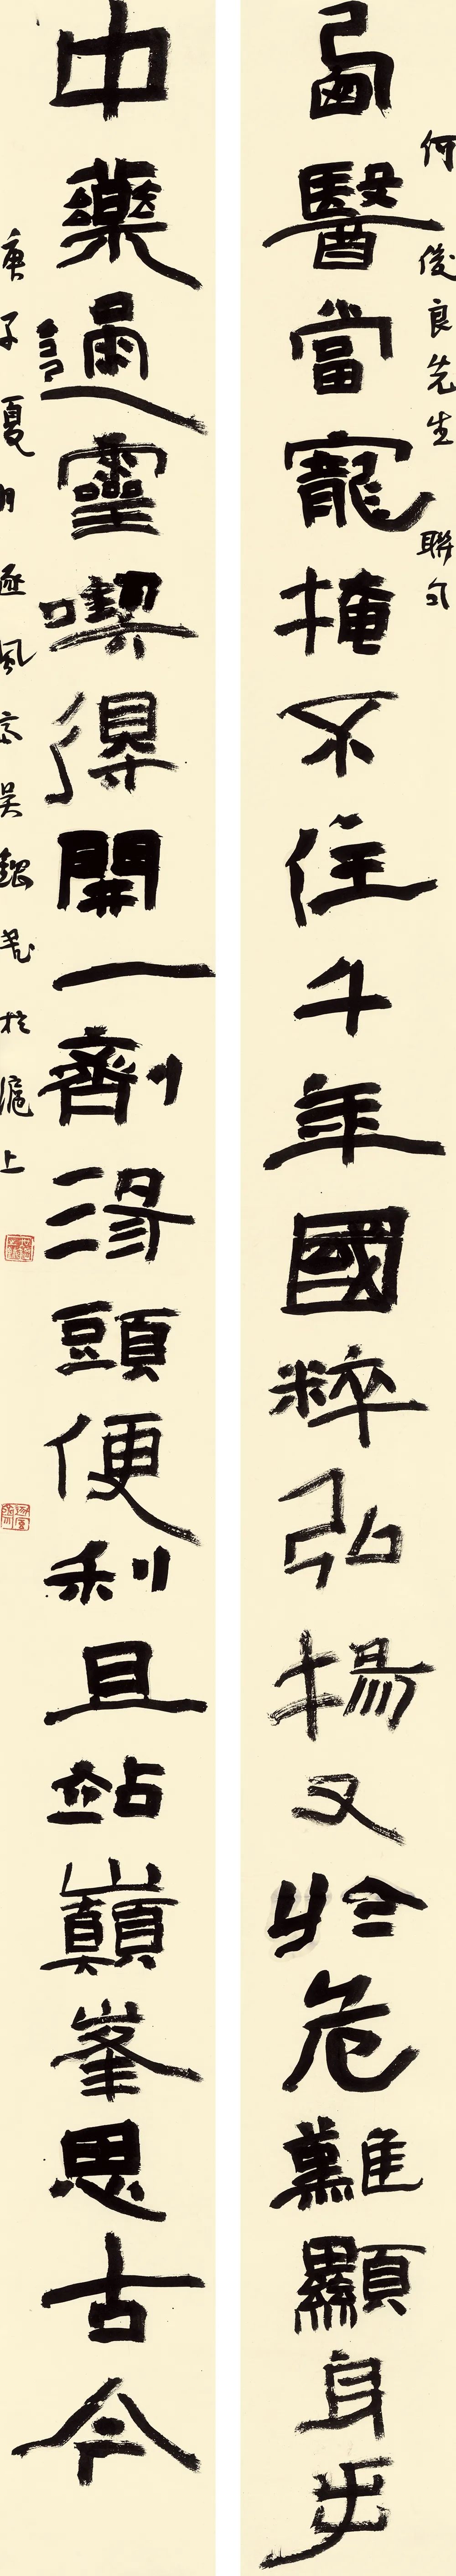 何俊良先生聯句
醫當寵掩不住千年國粹弘揚又於危難顯身
中藥通靈喫得開一劑湯頭便利且站巔峯思古今
庚子夏月風吳於滬上